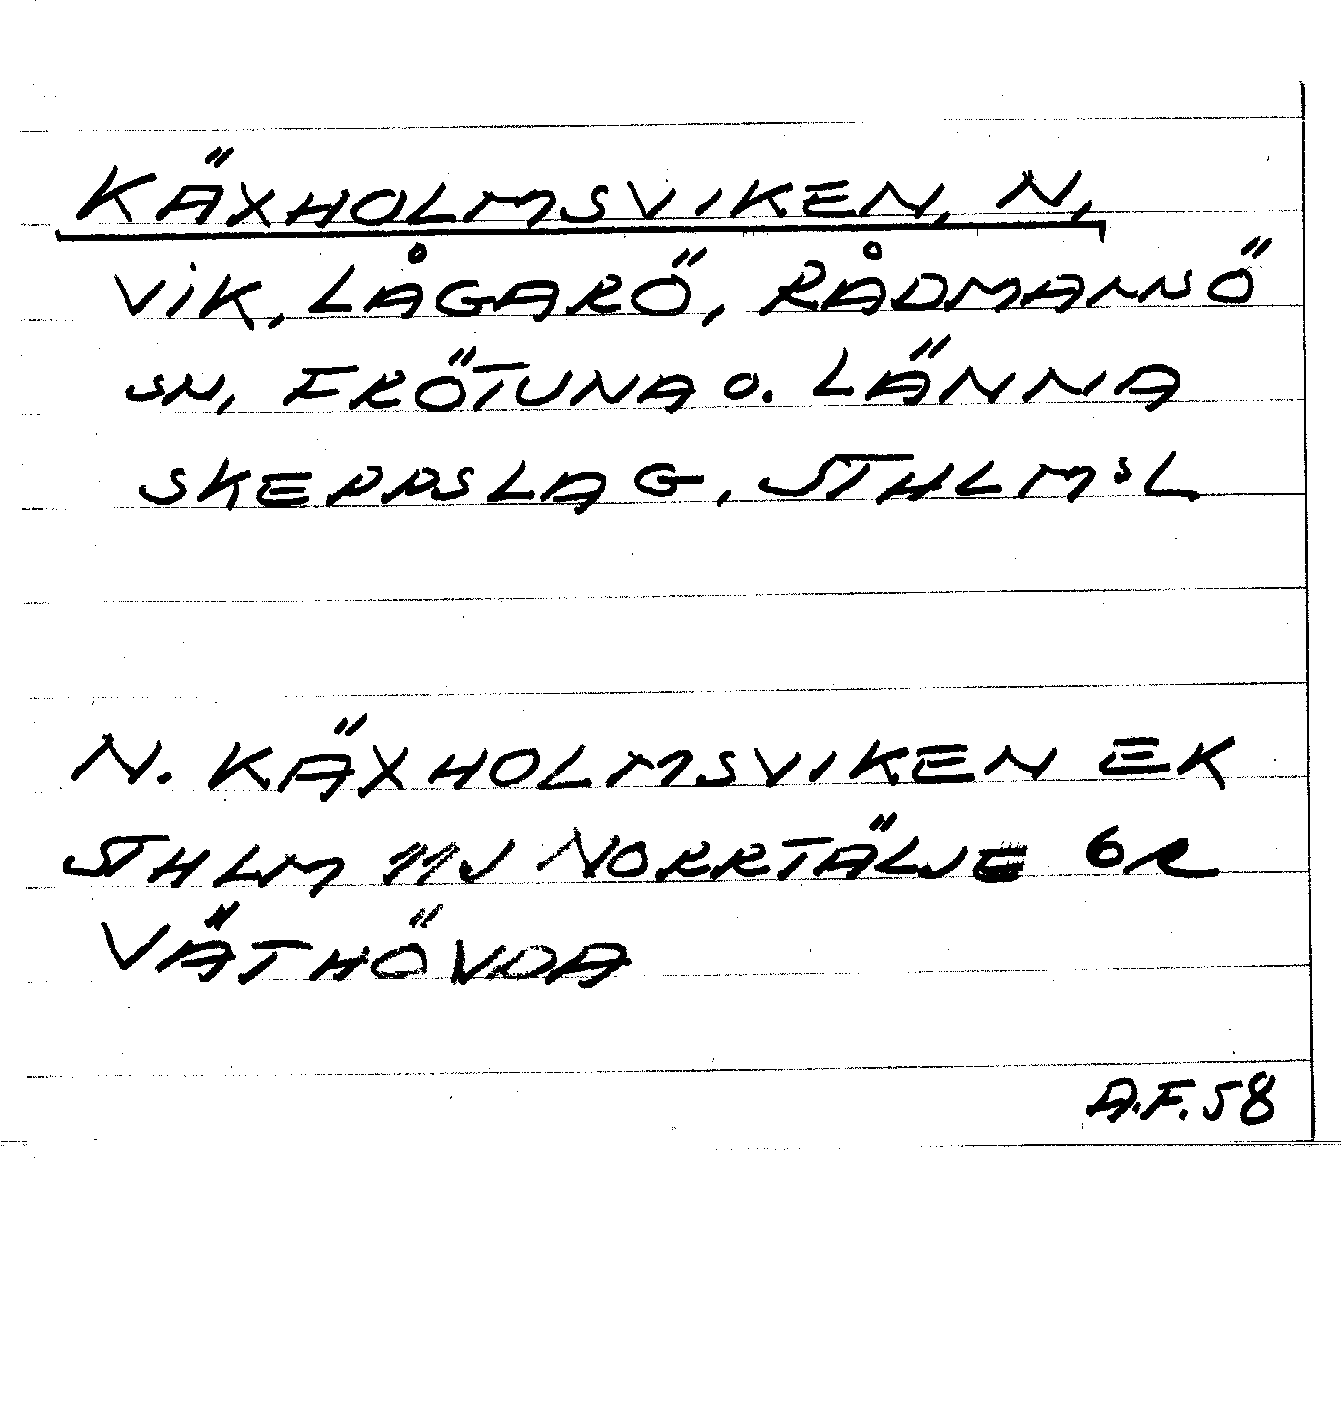 KÄXHOLMSVIKEN, N,
VIK, LÅGARÖ, RÅDMANSÖ
SN, FRÖTUNA O. LÄNNA
SKEPPSLAG, STHLMSL
N. KÄXHOLMSVIKEN EK
STHLM 11J NORRTÄLJE 6R
VÄTHÖVDA
A.F.58